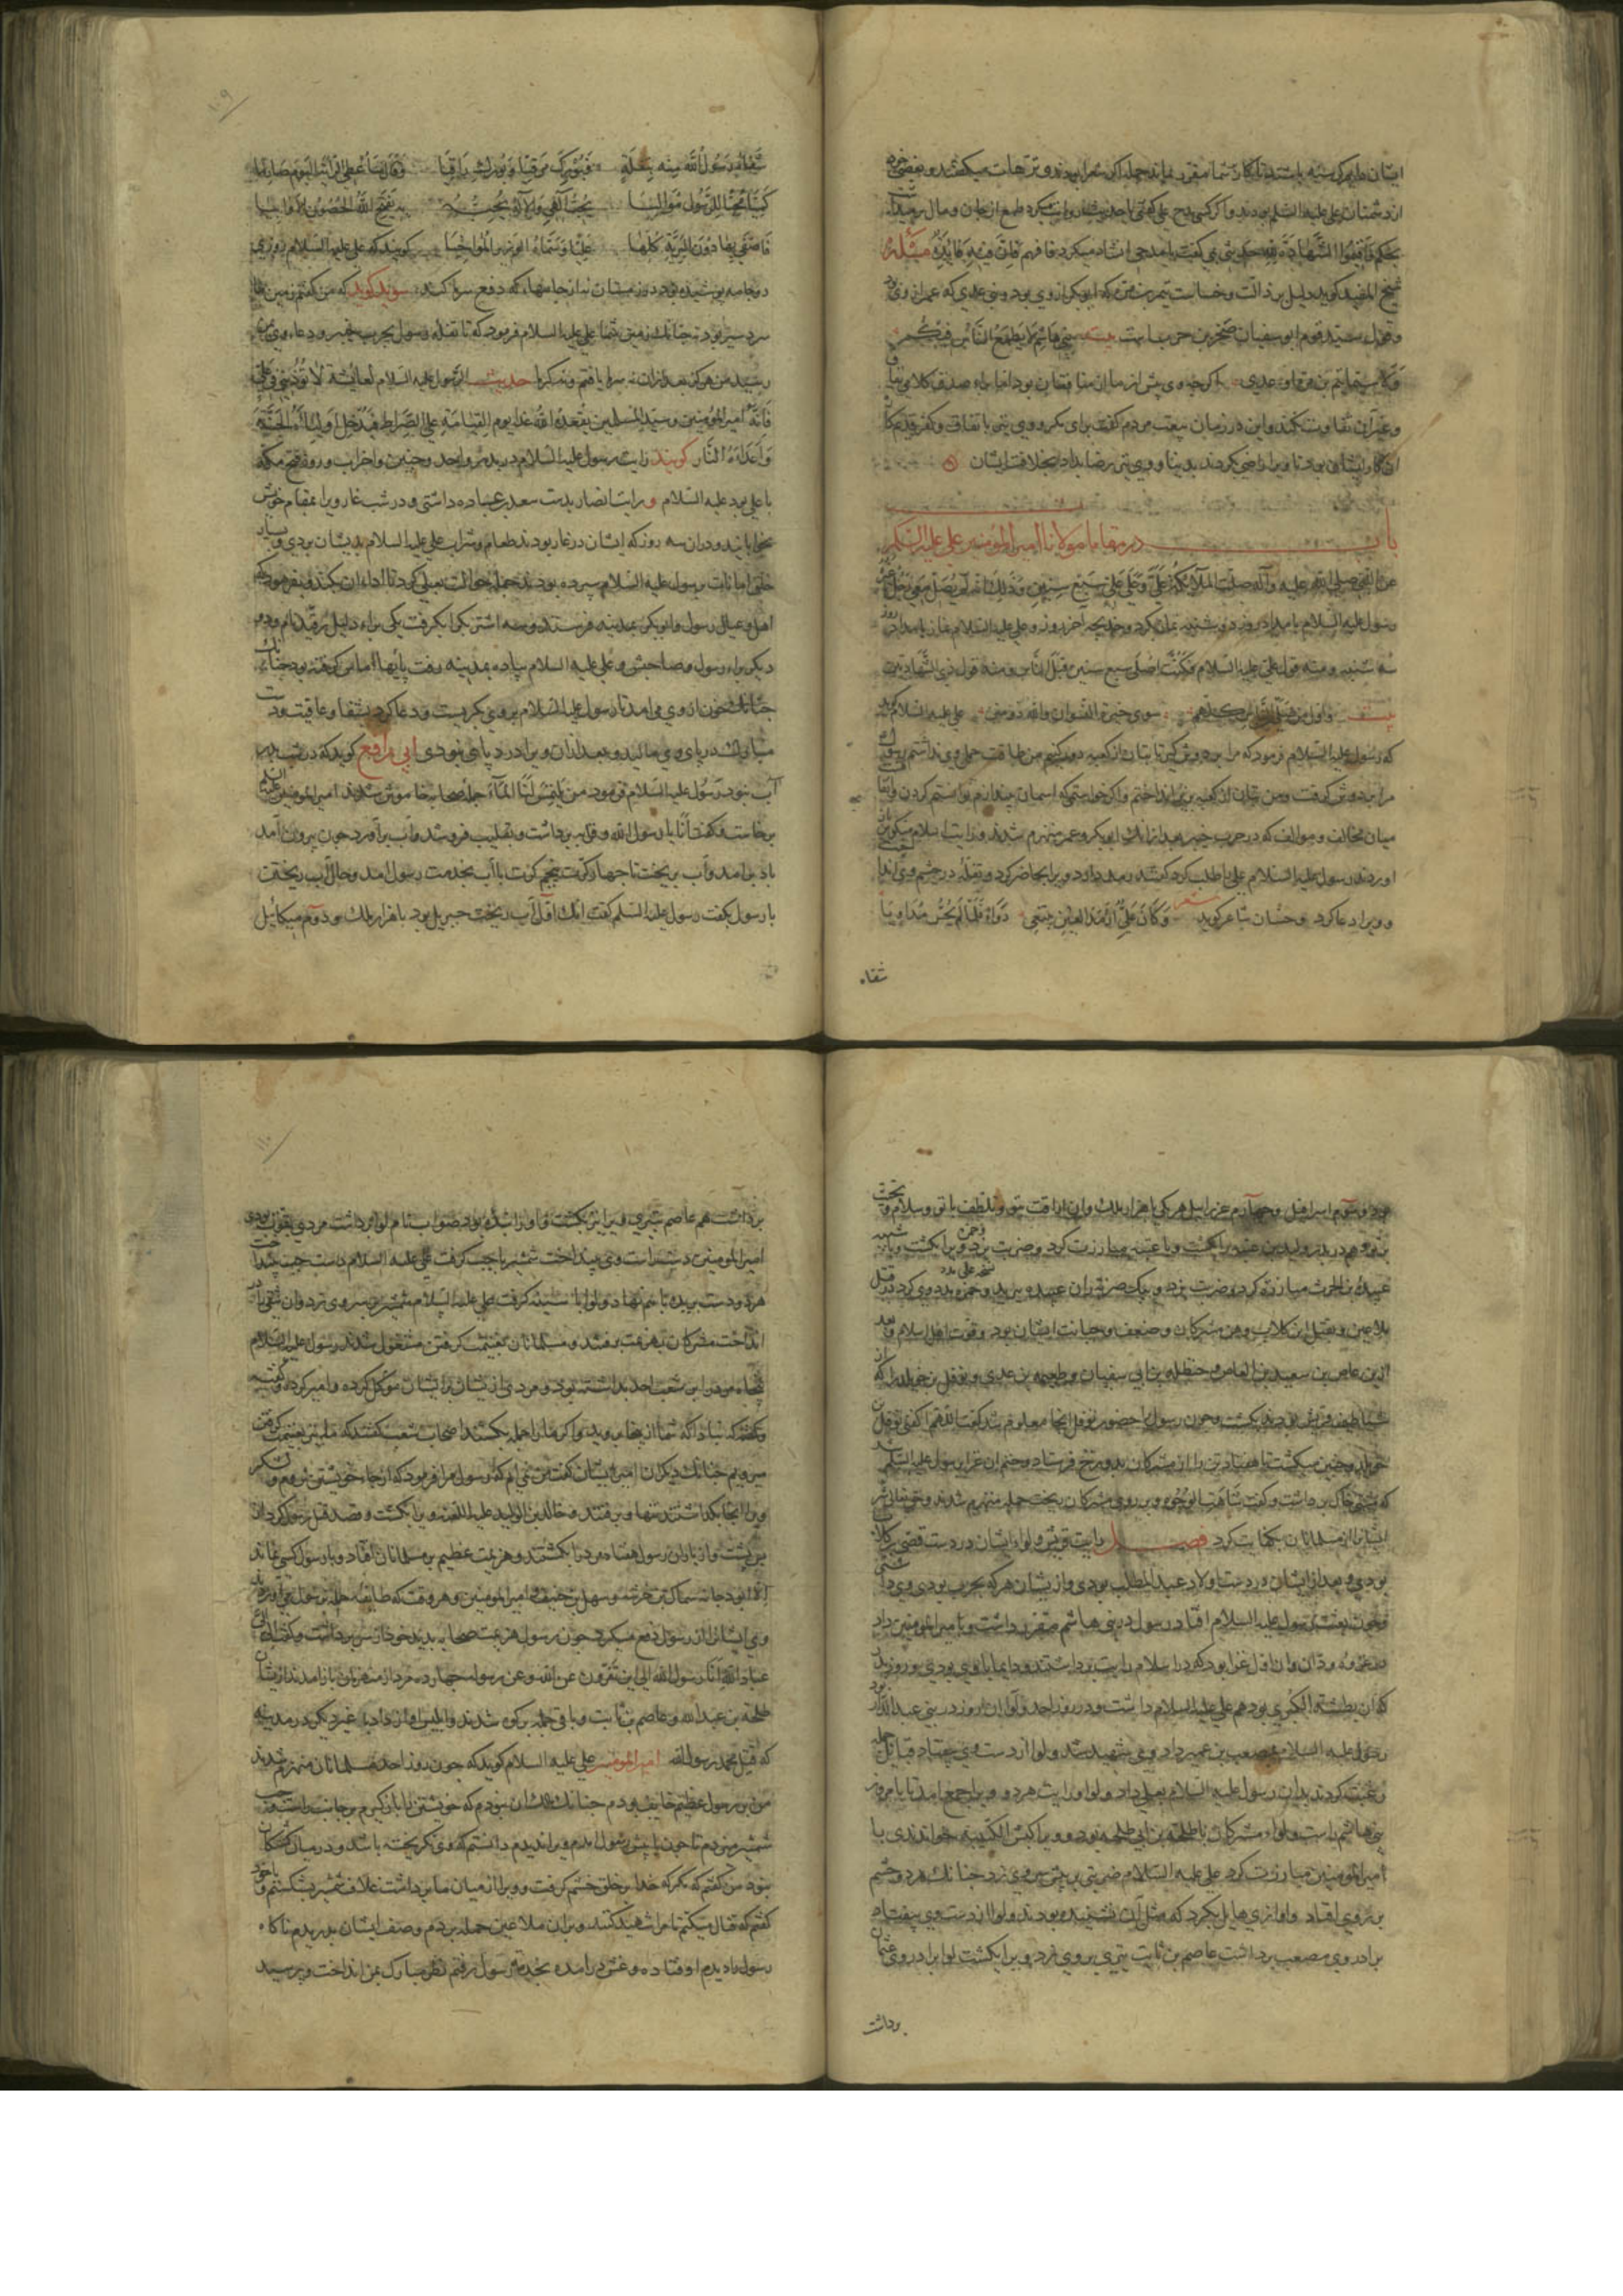 ایشان طیم کرسنه باشند تا کار شما مقرر نماند جمله اکن شعرا بودند و ترهات میکفتند و بعضی
از دشمنان علی علیه السلم بودند و اکر کسی مدح علی کفتی یا حدیث روایت کرد طمع از جان و مال
شیخ المفید کوید دلیل بر ذالت و خساست تیم بن مره که ابوبکر از وی بود و بنی عدی که عمر از وی بود
و قول سید قوم ابو سفیان صخر بن حرب است بیت بنی هاشم لا یطمع الناس فیکم
و لا سیما تیم بن مرة او عدی اکرچه وی پیش از ما از منافقان بود اما براء صدق کلام وی
و این در زمان بیعت مردم کفت برای بکر و وی نیز با نفاق و کفر قدیم
ویرا راضی کردند و وی نیز رضا بداد بخلافت ایشان
باب در مقامات مولانا امیر المومنین علی علیه السلم
عن النبی صلی الله علیه و آله صلت الملائکة علی و علی علی سبع سنین و ذلك انه لم یصل معی رجل غیره
رسول علیه السلام بامداد روز دوشنبه نماز کرد و خدیجه آخر روز و علی علیه السلام نماز بامداد روز
سه شنبه و منه قول علی علیه السلام فکنت اصلی سبع سنین قبل الناس و منه قول ذی الشهادتین
سوی خیرة النسوان والله ذو منن علی علیه السلام کوید
که رسول علیه السلام فرمود که مرا بر دوش کیر تا بتان از کعبه دور کنیم من طاقت حمل وی نداشتم
مرا بر دوش کرفت و من بتان از کعبه بزیر انداختم و اکر خواستمی که اسمان
میان مخالف و موالف که در حرب خیبر بعد از انك ابوبکر و عمر منهزم شدند و رایت اسلام
اوردند رسول علیه السلام علی را طلب کرد کفتند رمد دارد ویرا حاضر کرد و تفله در چشم وی انداخت
و ویرا دعا کرد و حسان شاعر کوید شعر و کان علی ارمد العین یبتغی دواء فلما لم یحس مداویا
شفاه
۱۰۹
شفاه رسول الله منه بتفلة فبورك مرقیا و بورك راقیا و قال ساعطی الرایة الیوم صارما
کمیا محبا للرسول موالیا یحب الهی و الاله یحبه به یفتح الله الحصون الاوابیا
فاصفی بها دون البریة کلها علیا و سماه الوزیر المواخیا کویند که علی علیه السلام
دو جامه پوشیده بود در زمستان نه از جامهاء که دفع سرما کند سوید کوید که من کفتم زمین ما
سردسیر بود نه چنانك زمین شما علی علیه السلام فرمود که تا تفله رسول بحرب خیبر و دعاء وی بمن
رسید من هرکز بعد از ان نه سرما یافتم و نه کرما حدیث الرسول علیه السلام لعائشة لا تؤذینی فی علی
فانه امیر المؤمنین و سید المسلمین یقعده الله غدا یوم القیامة علی الصراط فیدخل اولیاءه الجنة
و اعداءه النار کویند رایت رسول علیه السلام در بدر و احد و حنین و احزاب و روز فتح مکه
با علی بود علیه السلام و رایت انصار بدست سعد بن عباده داشتی و در شب غار ویرا بمقام خویش
بخوابانید و در ان سه روز که ایشان در غار بودند طعام و شراب علی علیه السلام بدیشان بردی
خلق امانات برسول علیه السلام سپرده بودند جمله حوالت بعلی کرد تا اداء ان بکند و بفرمود که
اهل و عیال رسول و ابوبکر بمدینه فرستد و سه اشتر بکرا بکرفت یکی براء دلیل
دیکر براء رسول و صاحبش و علی علیه السلام پیاده بمدینه رفت پایها اماس کرفته بود
چنانك خون از وی می امد تا رسول علیه السلام بر وی بکریست و دعا کرد بشفا و عاقبت دست
مبارك در پای وی مالید و بعد از ان ویرا درد پای نبودی ابی رافع کوید که در شب بدر
آب نبود رسول علیه السلام فرمود من یلتمس لنا الماء جمله صحابه خاموش شدند امیر المومنین علی
برخاست و کفت انا یا رسول الله و قربه برداشت و بقلیب فرو شد و آب براورد چون بیرون آمد
باد برامد و آب بریخت تا چهار کرت پنجم کرت با آب بخدمت رسول امد و حال آب ریختن
با رسول بکفت رسول علیه السلم کفت انك اول آب ریخت جبریل بود با هزار ملك و دوم میکائیل
بود و سوم اسرافیل و چهارم عزرائیل هر یکی با هزار ملك
عبیدة بن الحرث مبارزه کرد و ضربت بزد و بیك ضربه ران عبیده ببرید و حمزه مدد وی کرد
ملاعین و بقتل این کلاب وهن مشرکان و ضعف و جبانت ایشان بود و قوت اهل اسلام و بعد
ازین عاص بن سعید بن العاص و حنظله بن ابی سفیان و طعیمه بن عدی و نوفل بن خویلد را که
شیاطین قریش بودند بکشت و چون رسول را حضور نوفل انجا معلوم شد کفت اللهم اکفنی نوفل بن
خویلد و چنین میکشت تا هفتاد تن را از مشرکان بدوزخ فرستاد و ختم ان غزا برسول علیه السلم
که مشتی خاك برداشت و کفت شاهت الوجوه و بر روی مشرکان ریخت جمله منهزم شدند و حق تعالی شر
ایشان از مسلمانان کفایت کرد فصل رایت قریش و لواء ایشان در دست قصی بن کلاب
بودی و بعد از ایشان در دست اولاد عبد المطلب بودی و از ایشان هر که بحرب بودی وی داشتی
و چون بعثت رسول علیه السلام افتاد رسول در بنی هاشم مقرر داشت و بامیر المومنین داد
در غزوه ودان و ان اول غزا بود که در اسلام رایت برداشتند و دایما با وی بودی و روز بدر
که ان بطشة الکبری بود هم علی علیه السلام داشت و در روز احد و لوا ان روز در بنی عبد الدار بود
رسول علیه السلام بمصعب بن عمیر داد وی شهید شد و لوا از دست وی بیفتاد قبائل جمله
رغبت کردند بدان رسول علیه السلام بعلی داد و لوا و رایت هر دو ویرا جمع امد تا بامروز
بنی هاشم راست و لواء مشرکان با طلحة بن ابی طلحه بود و ویرا کبش الکتیبه خواندندی با
امیر المومنین مبارزت کرد علی علیه السلام ضربتی بر پیش سر وی زد چنانك هر دو چشم
بر روی افتاد و اوازی هایل بکرد که مثل آن نشنیده بودند و لوا از دست وی بیفتاد
برادر وی مصعب برداشت عاصم بن ثابت تیری بر وی زد ویرا بکشت لوا برادر وی عثمان
برداشت
۱۱۰
برداشت هم عاصم بتیری ویرا نیز بکشت
امیر المومنین دست راست وی بینداخت شمشیر با چپ کرفت علی علیه السلام دست چپ بینداخت
هر دو دست بریده باهم نهاد و لوا با سینه کرفت علی علیه السلام شمشیر بر سر وی زد
انداخت مشرکان بهزیمت برفتند و مسلمانان بغنیمت کرفتن مشغول شدند رسول علیه السلام
پنجاه مرد را بر شعب احد بداشته بود و مردی از ایشان بر ایشان موکل کرده و امیر کرده و کفته
که شما از اینجا مروید و اکر ما را جمله بکشند اصحاب شعب کفتند که ما نیز بغنیمت کرفتن
میرویم چنانك دیکران امیر ایشان کفت من نمی ایم که رسول مرا فرمود که از جاء خویشتن مرو
ویرا انجا بکذاشتند تنها و برفتند و خالد بن الولید علیه اللعنه ویرا بکشت و قصد قتل رسول کرد از
پس پشت و از یاران رسول هفتاد مرد را بکشتند و هزیمت عظیم بر مسلمانان افتاد و با رسول کسی نماند
الا ابو دجانه سماك بن خرشه و سهل بن حنیف و امیر المومنین و هر وقت که طایفه حمله بر رسول می اوردند
وی ایشان را از رسول دفع میکرد چون رسول هزیمت صحابه بدید خود از سر برداشت و کفت الی
عباد الله انا رسول الله الی این تفرون عن الله و عن رسوله چهارده مرد از منهزمان باز امدند ازیشان
طلحة بن عبد الله و عاصم بن ثابت و باقی جمله بر کوه شدند و ابلیس اواز داد یا غیر دیکر در مدینه
که قتل محمد رسول الله امیر المومنین علی علیه السلام کوید که چون روز احد مسلمانان منهزم شدند
من بر رسول عظیم خایف بودم چنانك مالك ان نبودم که خویشتن را باز کیرم بر جانب راست و چپ
شمشیر میزدم تا چون با پیش رسول امدم ویرا ندیدم دانستم که وی نکریخته باشد و در میان کشتکان
نبود من کفتم که مکر که خدا بر خلق خشم کرفت و ویرا از میان ما برداشت غلاف شمشیر بشکستم و با خود
کفتم که قتال میکنم تا مرا شهید کنند و بر ان ملاعین حمله بردم وصف ایشان بدریدم ناکاه
رسول را دیدم اوفتاده و غش درامده بخدمت رسول رفتم نظر مبارك بمن انداخت و پرسید